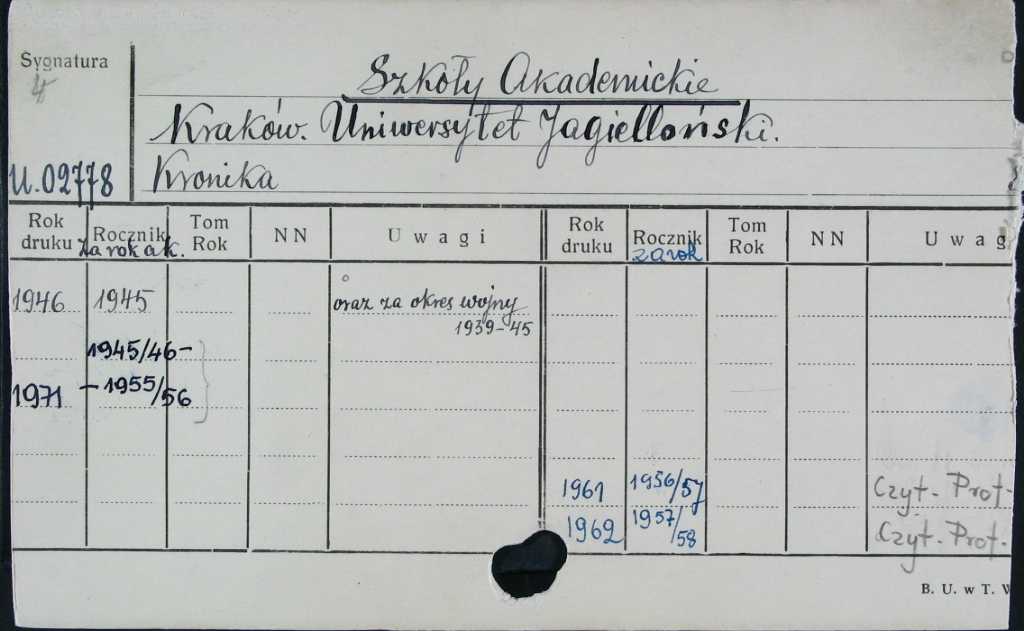 Sygnatura
4
U.02778
Szkoły Akademickie
Kraków. Uniwersytet Jagielloński.
Kronika
Rok druku Rocznik Tom Rok NN Uwagi Rok druku Rocznik Tom Rok NN Uwag
za rok ak. za rok
1946 1945 oraz za okres wojny
1939-45
1945/46-
1971 -1955/56
1961 1956/57 Czyt. Prof.
1962 1957/58 Czyt. Prof.
B. U. w T. W